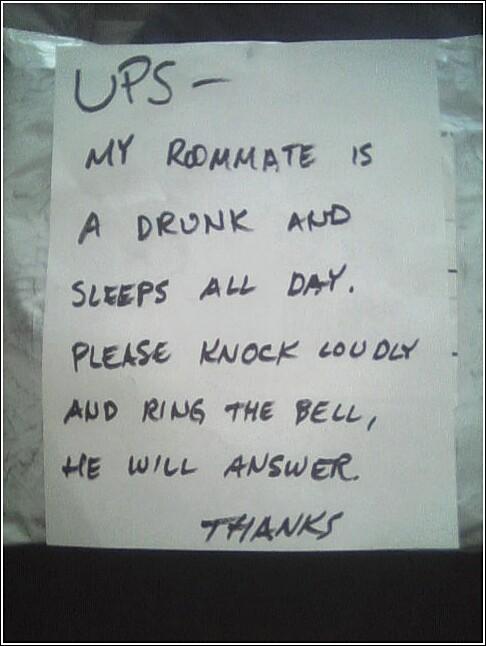 UPS —
MY ROOMMATE IS
A DRUNK AND
SLEEPS ALL DAY.
PLEASE KNOCK LOUDLY
AND RING THE BELL,
HE WILL ANSWER.
THANKS